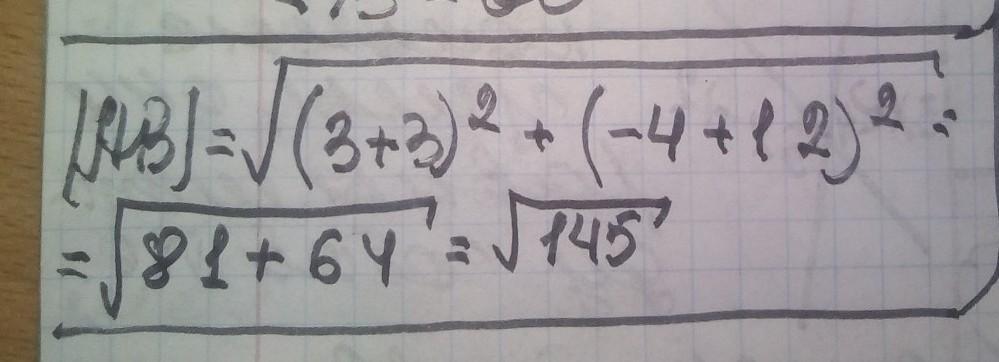 |AB| = √(3+3)² + (-4+12)² =
= √81+64 = √145